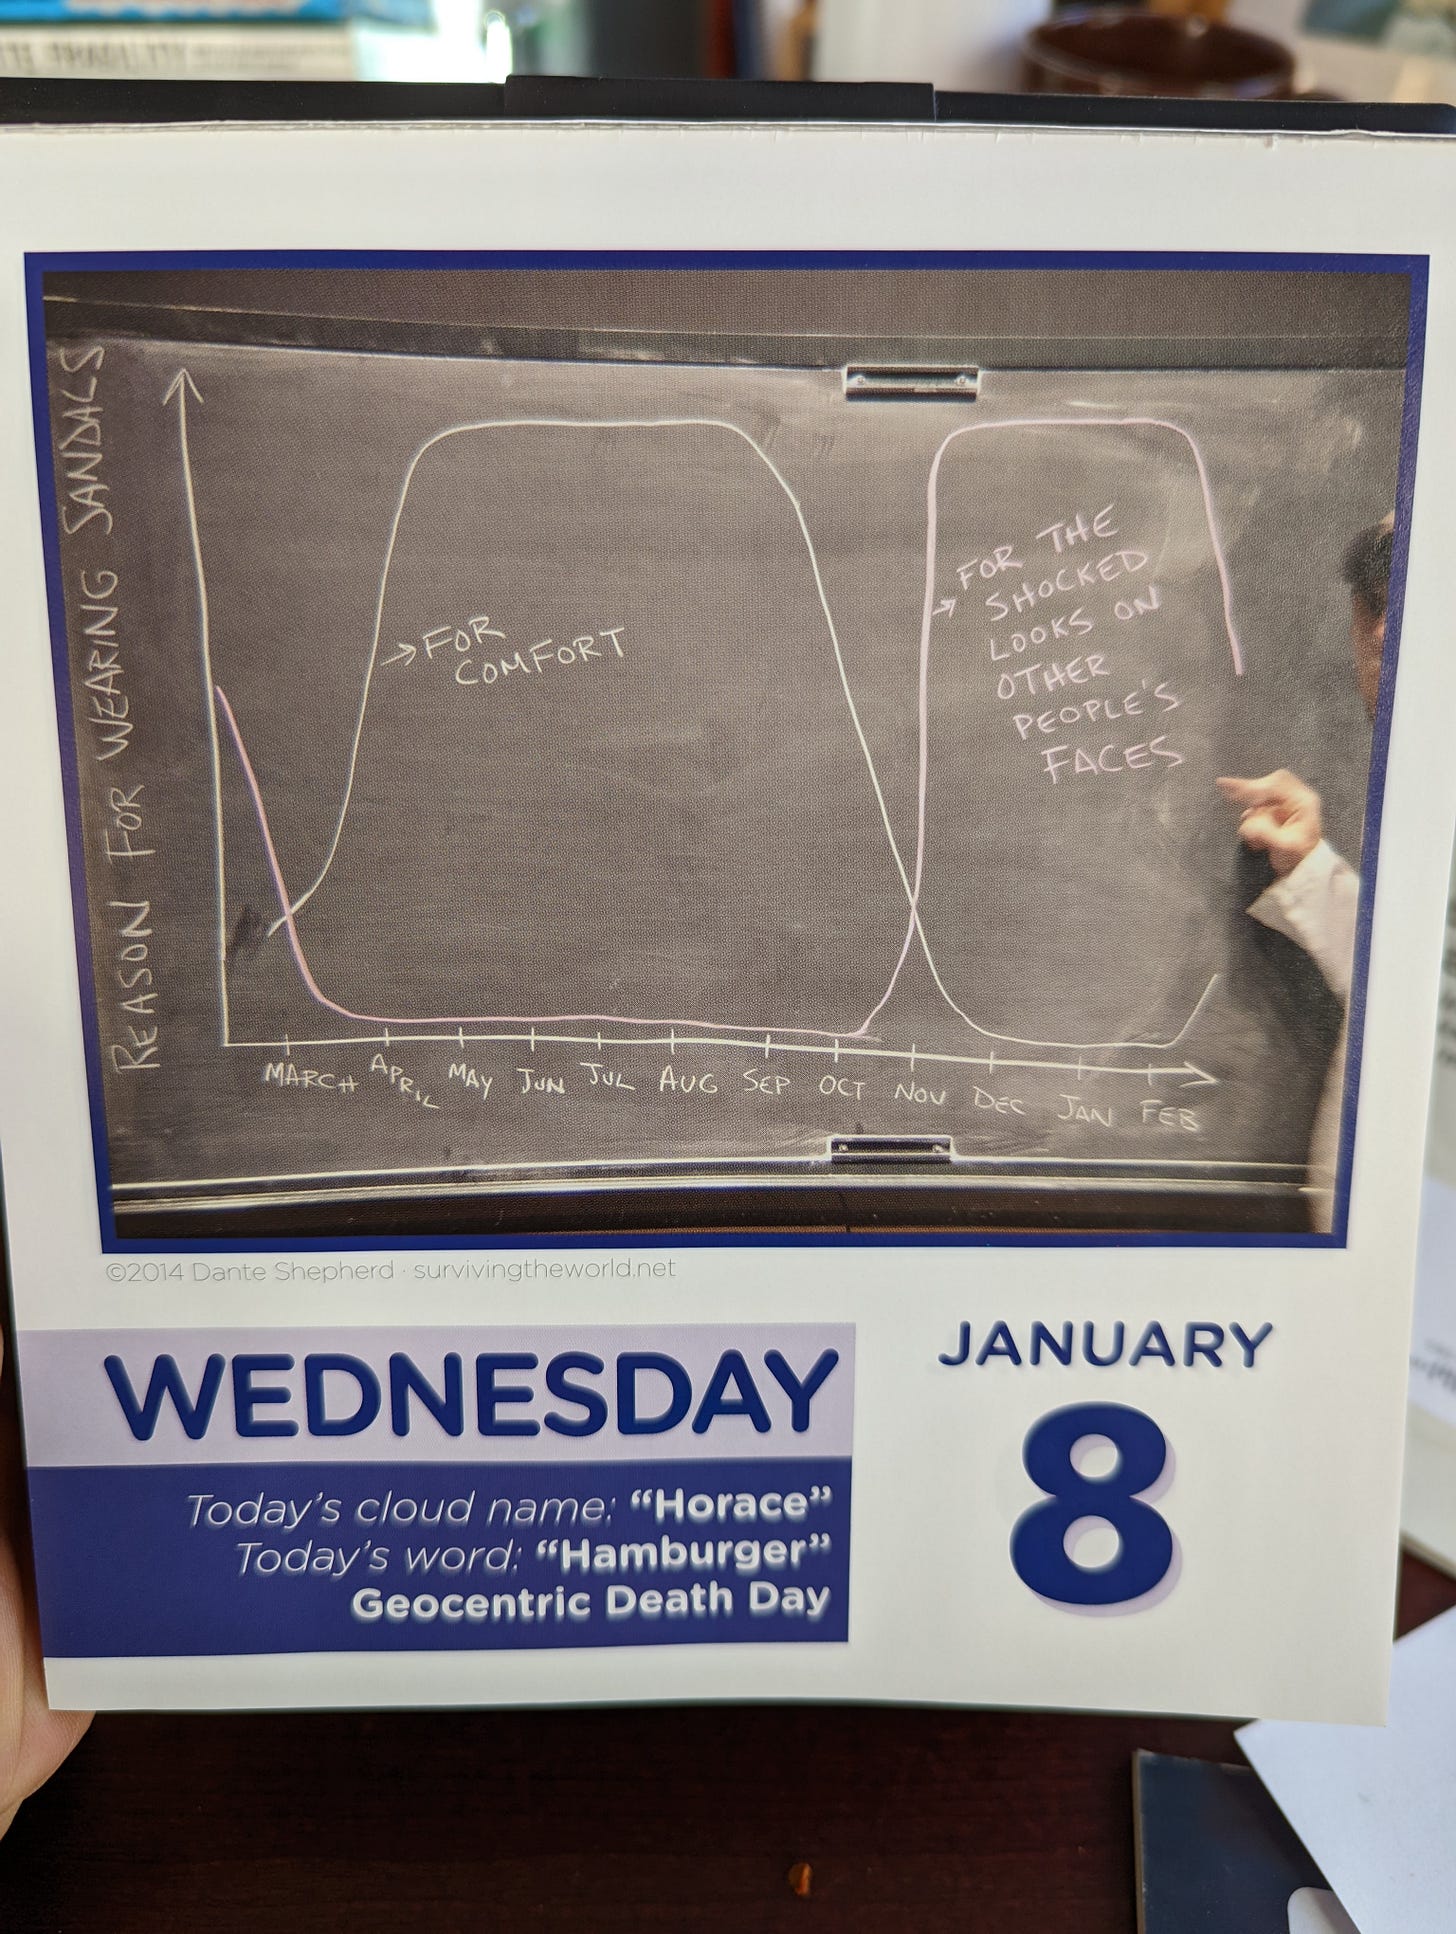 REASON FOR WEARING SANDALS
FOR
COMFORT
FOR THE
SHOCKED
LOOKS ON
OTHER
PEOPLE'S
FACES
MARCH APRIL MAY JUN JUL AUG SEP OCT NOV DEC JAN FEB
©2014 Dante Shepherd · survivingtheworld.net
WEDNESDAY
JANUARY
8
Today's cloud name: “Horace”
Today's word: “Hamburger”
Geocentric Death Day